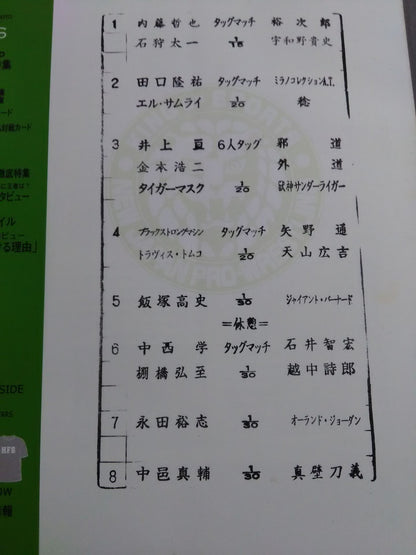 1 内藤哲也 タッグマッチ 裕次郎
石狩太一 1/15 宇和野貴史
2 田口隆祐 タッグマッチ ミラノコレクションA.T.
エル・サムライ 1/20 稔
3 井上亘 6人タッグ 邪道
金本浩二 外道
タイガーマスク 1/20 獣神サンダーライガー
4 ブラックストロングマシン タッグマッチ 矢野通
トラヴィス・トムコ 1/20 天山広吉
5 飯塚高史 1/30 ジャイアント・バーナード
=休憩=
6 中西学 タッグマッチ 石井智宏
棚橋弘至 1/30 越中詩郎
7 永田裕志 1/30 オーランド・ジョーダン
8 中邑真輔 1/30 真壁刀義
集
対戦カード
徹底特集
タビュー
イル
ビュー
ける理由」
SIDE
HFS
OW
報